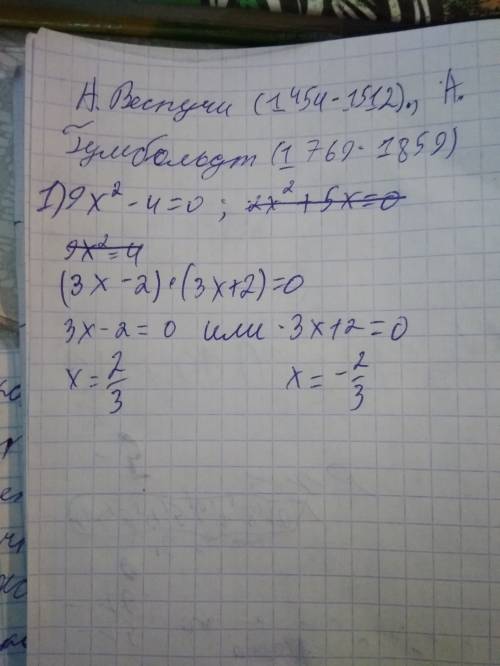 А. Веспучи (1454-1512)., А.
Гумбольдт (1769-1859)
1) 9x² - 4 = 0 ; 2x² + 5x = 0
9x² = 4
(3x - 2) · (3x + 2) = 0
3x - 2 = 0 или · 3x + 2 = 0
x = 2/3 x = - 2/3